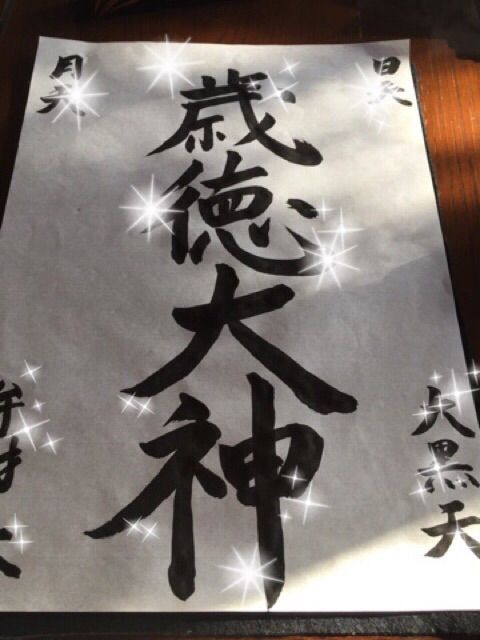 日天
歳徳大神
月天
大黒天
弁才天